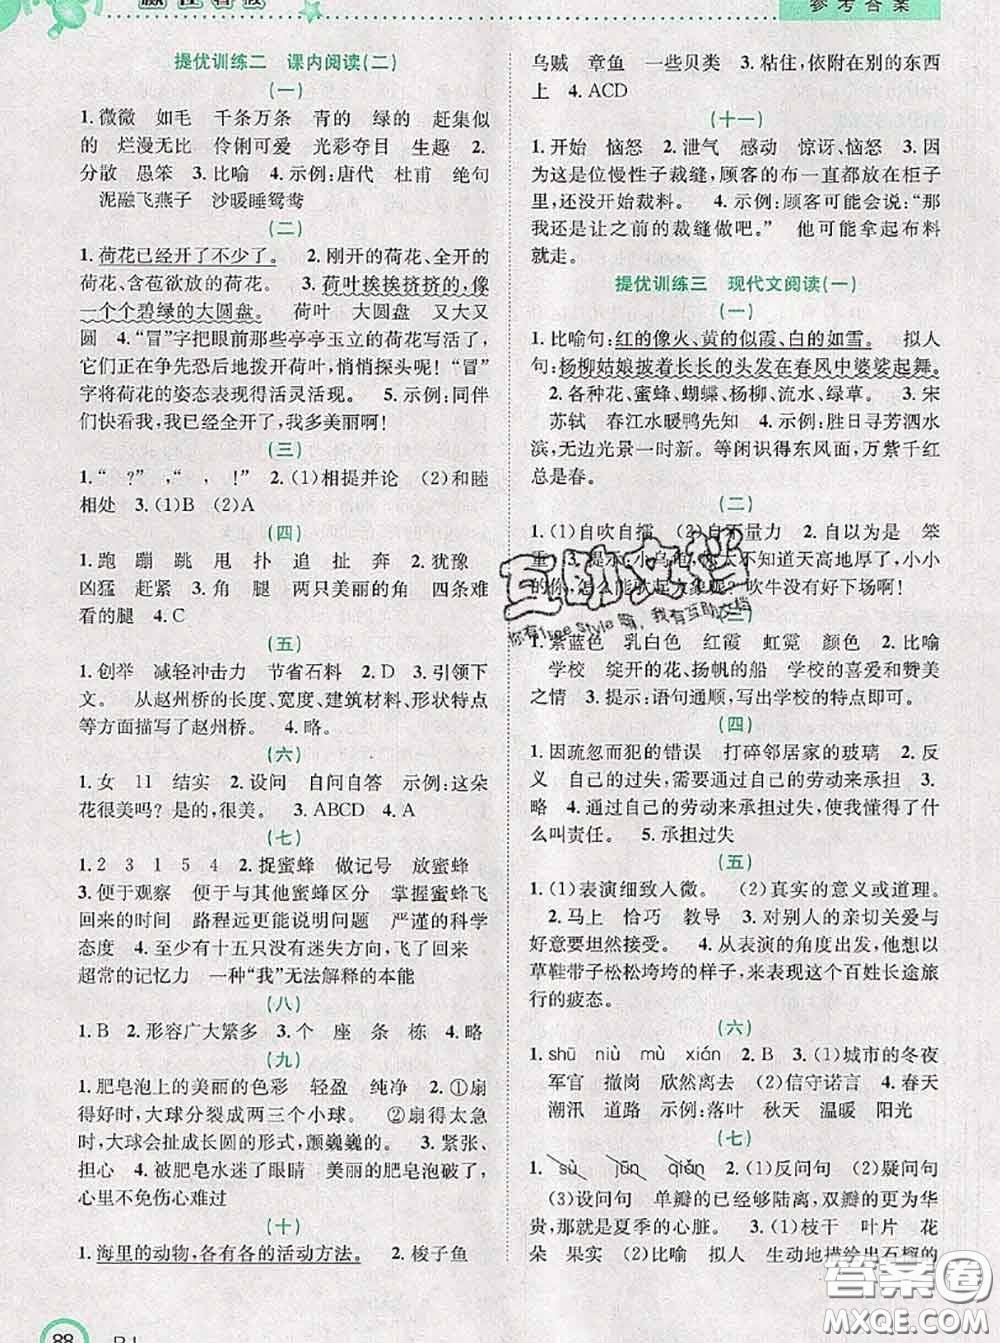 赢在暑假
参考答案
提优训练二 课内阅读(二)
(一)
1.微微 如毛 千条万条 青的 绿的 赶集似
的 烂漫无比 伶俐可爱 光彩夺目 生趣 2.
分散 愚笨 3.比喻 4.示例:唐代 杜甫 绝句
泥融飞燕子 沙暖睡鸳鸯
(二)
1.荷花已经开了不少了。 2.刚开的荷花、全开的荷
花、含苞欲放的荷花。 3.荷叶挨挨挤挤的,像
一个个碧绿的大圆盘。 荷叶 大圆盘 又大又
圆 4.“冒”字把眼前那些亭亭玉立的荷花写活了,
它们正在争先恐后地拨开荷叶,悄悄探头呢!“冒”
字将荷花的姿态表现得活灵活现。 5.示例:同伴
们快看我,我已经全开了,我多美丽啊!
(三)
1.“ ?”,“ , !” 2.(1)相提并论 (2)和睦
相处 3.(1)B (2)A
(四)
1.跑 蹦 跳 甩 扑 追 扯 奔 2.犹豫
凶猛 赶紧 3.角 腿 两只美丽的角 四条难
看的腿 4.C
(五)
1.创举 减轻冲击力 节省石料 2.D 3.承上启下
文。 从赵州桥的长度、宽度、建筑材料、形状特点
等方面描写了赵州桥。 4.略。
(六)
1.女 11 结实 2.设问 自问自答 示例:这朵
花很美吗?是的,很美。 3.ABCD 4.A
(七)
1.2 3 1 5 4 2.捉蜜蜂 做记号 放蜜蜂
3.便于观察 便于与其他蜜蜂区分 掌握蜜蜂飞
回来的时间 路程远更能说明问题 严谨的科学
态度 4.至少有十五只没有迷失方向,飞了回来
超常的记忆力 一种“我”无法解释的本能
(八)
1.B 2.形容广大繁多 3.个 座 条 栋 4.略
(九)
1.肥皂泡上的美丽的色彩 轻盈 纯净 2.①扇
得好时,大球分裂成两三个小球。 ②扇得太急
时,大球会扯成长圆的形式,颤巍巍的。 3.紧张、
担心 4.被肥皂水迷了眼睛 美丽的肥皂泡破了,
心里不免伤心难过
(十)
1.海里的动物,各有各的活动方法。 2.梭子鱼
88
乌贼 章鱼 一些贝类 3.粘住,依附在别的东西
上 4.ACD
(十一)
1.开始 恼怒 2.泄气 感动 惊讶、恼怒 3.因
为这是位慢性子裁缝,顾客的布一直都放在柜子
里,还没开始裁料。 4.示例:顾客可能会说:“那
我还是让之前的裁缝做吧。” 他可能拿起布料
就走。
提优训练三 现代文阅读(一)
(一)
1.比喻句:红的像火、黄的似霞、白的如雪。 拟人
句:杨柳姑娘披着长长的头发在春风中婆娑起舞。
2.各种花、蜜蜂、蝴蝶、杨柳、流水、绿草。 3.宋
苏轼 春江水暖鸭先知 4.示例:胜日寻芳泗水
滨,无边光景一时新。等闲识得东风面,万紫千红
总是春。
(二)
1.(1)自吹自擂 (2)自不量力 2.自以为是 笨
重 3.提示:小乌龟,
不知道天高地厚了,小小
的你,怎么能
呢?吹牛没有好下场啊!
(三)
1.紫蓝色 乳白色 红霞 虹霓 颜色 2.比喻
学校 绽开的花、扬帆的船 学校的喜爱和赞美
之情 3.提示:语句通顺,写出学校的特点即可。
(四)
1.因疏忽而犯的错误 打碎邻居家的玻璃 2.反
义 自己的过失,需要通过自己的劳动来承担 3.
略 4.通过自己的劳动来承担过失,使我懂得了什
么叫责任。 5.承担过失
(五)
1.(1)表演细致入微。 (2)真实的意义或道理。
2.马上 恰巧 教导 3.对别人的亲切关爱与
好意要坦然接受。 4.从表演的角度出发,他想以
草鞋带子松松垮垮的样子,来表现这个百姓长途旅
行的疲态。
(六)
1.shū niù mù xián 2.B 3.(1)城市的冬夜
军官 撤岗 欣然离去 (2)信守诺言 4.春天
潮汛 道路 示例:落叶 秋天 温暖 阳光
(七)
1.sù jūn qiǎn 2.(1)反问句 (2)疑问句
(3)设问句 单瓣的已经够陆离,双瓣的更为华
贵,那就是夏季的心脏。 3.(1)枝干 叶片 花
朵 果实 (2)比喻 拟人 生动地描绘出石榴的
互助文档
你有free style 吗,我有互助文档
答案圈
MXQE.COM